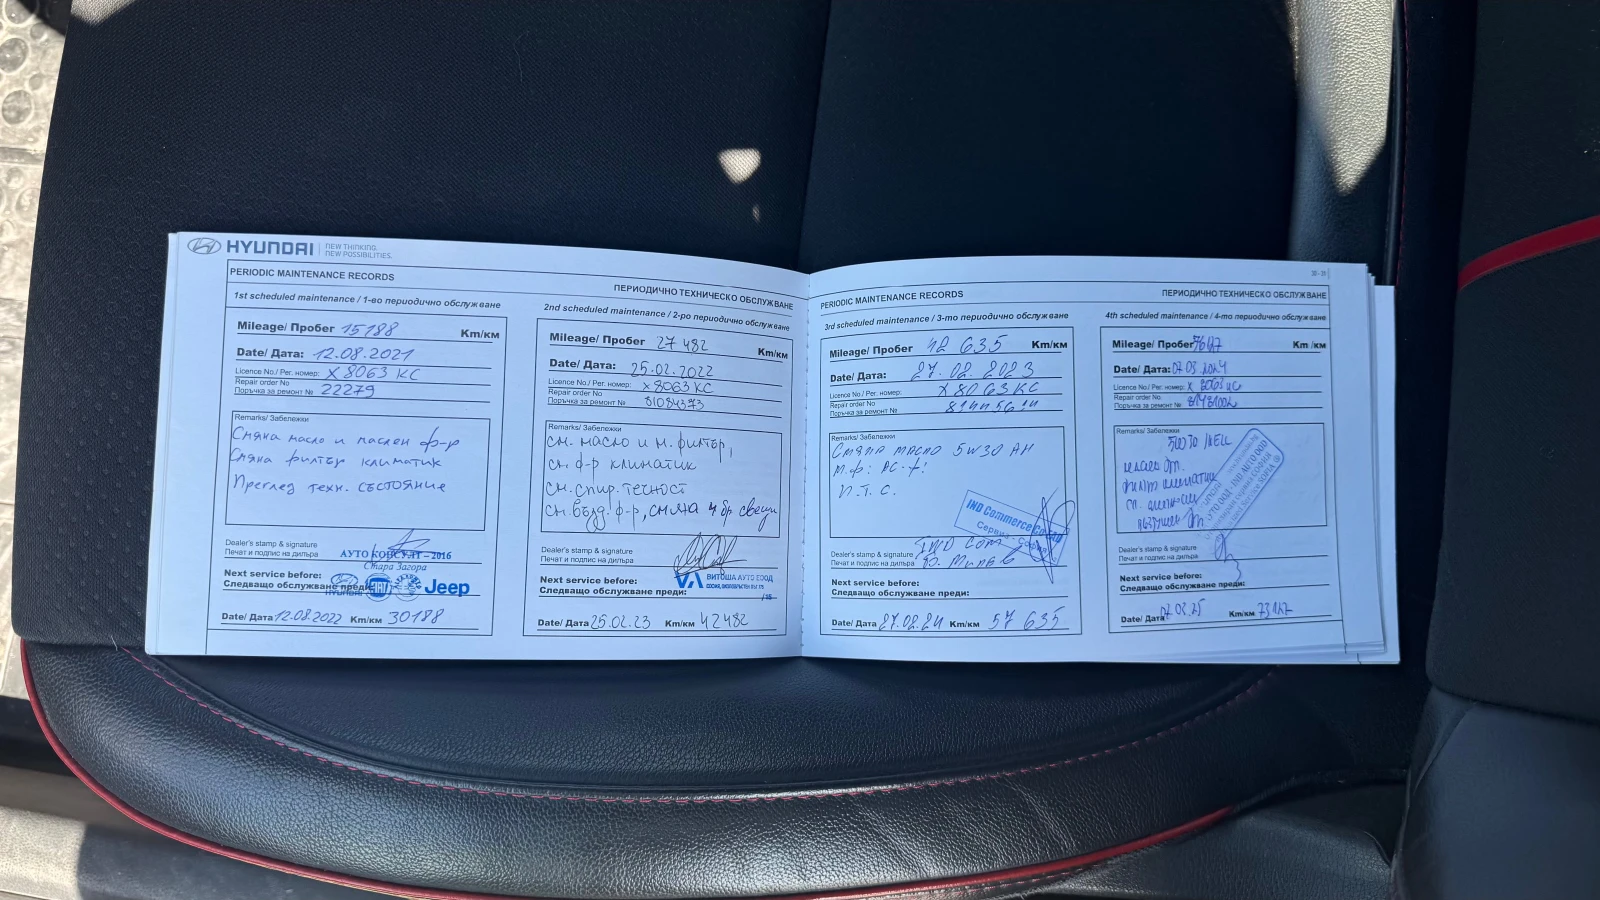 HYUNDAI
NEW THINKING.
NEW POSSIBILITIES.
PERIODIC MAINTENANCE RECORDS
ПЕРИОДИЧНО ТЕХНИЧЕСКО ОБСЛУЖВАНЕ
1st scheduled maintenance / 1-во периодично обслужване
Mileage/ Пробег 15188 Km/км
Date/ Дата: 12.08.2021
Licence No./ Рег. номер: X 8063 KC
Repair order No
Поръчка за ремонт № 22279
Remarks/ Забележки
Смяна масло и маслен ф-р
Смяна филтър климатик
Преглед техн. състояние
Dealer's stamp & signature
Печат и подпис на дилъра
АУТО КОНСУЛТ – 2016
Стара Загора
HYUNDAI FIAT Jeep
Next service before:
Следващо обслужване преди:
Date/ Дата 12.08.2022 Km/км 30188
2nd scheduled maintenance / 2-ро периодично обслужване
Mileage/ Пробег 27 482 Km/км
Date/ Дата: 25.02.2022
Licence No./ Рег. номер: X 8063 KC
Repair order No
Поръчка за ремонт № 81084373
Remarks/ Забележки
см. масло и м. филтър,
см. ф-р климатик
см. спир. течност
см. възд. ф-р, смяна 4 бр свещи
Dealer's stamp & signature
Печат и подпис на дилъра
ВИТОША АУТО ЕООД
Next service before:
Следващо обслужване преди:
Date/ Дата 25.02.23 Km/км 42482
PERIODIC MAINTENANCE RECORDS
ПЕРИОДИЧНО ТЕХНИЧЕСКО ОБСЛУЖВАНЕ
3rd scheduled maintenance / 3-то периодично обслужване
Mileage/ Пробег 42 635 Km/км
Date/ Дата: 27.02.2023
Licence No./ Рег. номер: X 8063 KC
Repair order No
Поръчка за ремонт №
Remarks/ Забележки
Смяна масло 5W30
П.Т.С.
IND Commerce Co
Сервиз - София
Dealer's stamp & signature
Печат и подпис на дилъра
IND Com
Next service before:
Следващо обслужване преди:
Date/ Дата 27.02.24 Km/км 57 635
4th scheduled maintenance / 4-то периодично обслужване
Mileage/ Пробег Km /км
Date/ Дата: 2024
Licence No./ Рег. номер: X 8063 KC
Repair order No
Поръчка за ремонт №
Remarks/ Забележки
Dealer's stamp & signature
Печат и подпис на дилъра
Next service before:
Следващо обслужване преди:
Date/ Дата Km/км